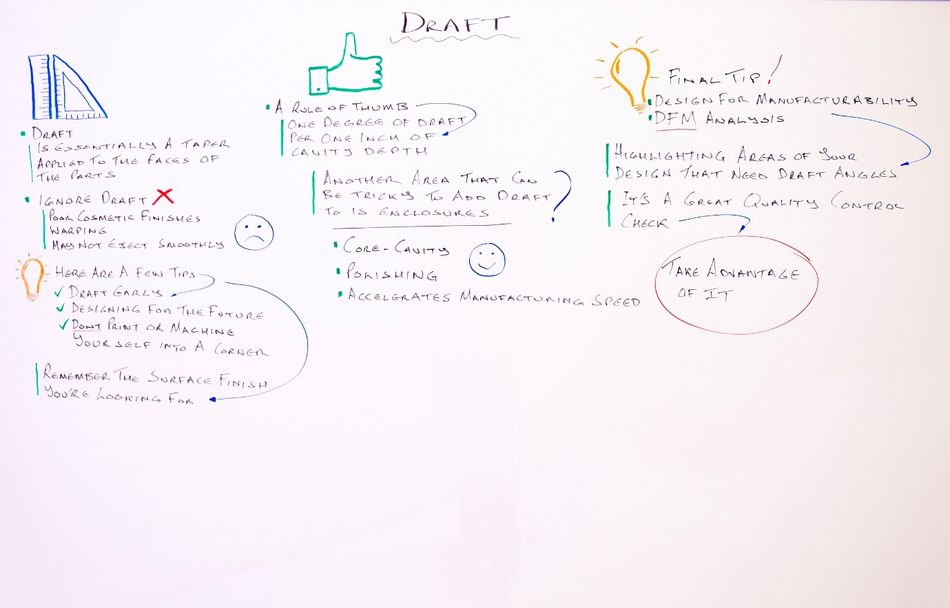 DRAFT
DRAFT
IS ESSENTIALLY A TAPER
APPLIED TO THE FACES OF
THE PARTS
IGNORE DRAFT
POOR COSMETIC FINISHES
WARPING
MAY NOT EJECT SMOOTHLY
HERE ARE A FEW TIPS
DRAFT EARLY
DESIGNING FOR THE FUTURE
DONT PRINT OR MACHINE
YOURSELF INTO A CORNER
REMEMBER THE SURFACE FINISH
YOU'RE LOOKING FOR
A RULE OF THUMB
ONE DEGREE OF DRAFT
PER ONE INCH OF
CAVITY DEPTH
ANOTHER AREA THAT CAN
BE TRICKY TO ADD DRAFT
TO IS ENCLOSURES ?
CORE-CAVITY
POLISHING
ACCELERATES MANUFACTURING SPEED
FINAL TIP!
DESIGN FOR MANUFACTURABILITY
DFM ANALYSIS
HIGHLIGHTING AREAS OF YOUR
DESIGN THAT NEED DRAFT ANGLES
IT'S A GREAT QUALITY CONTROL
CHECK
TAKE ADVANTAGE
OF IT